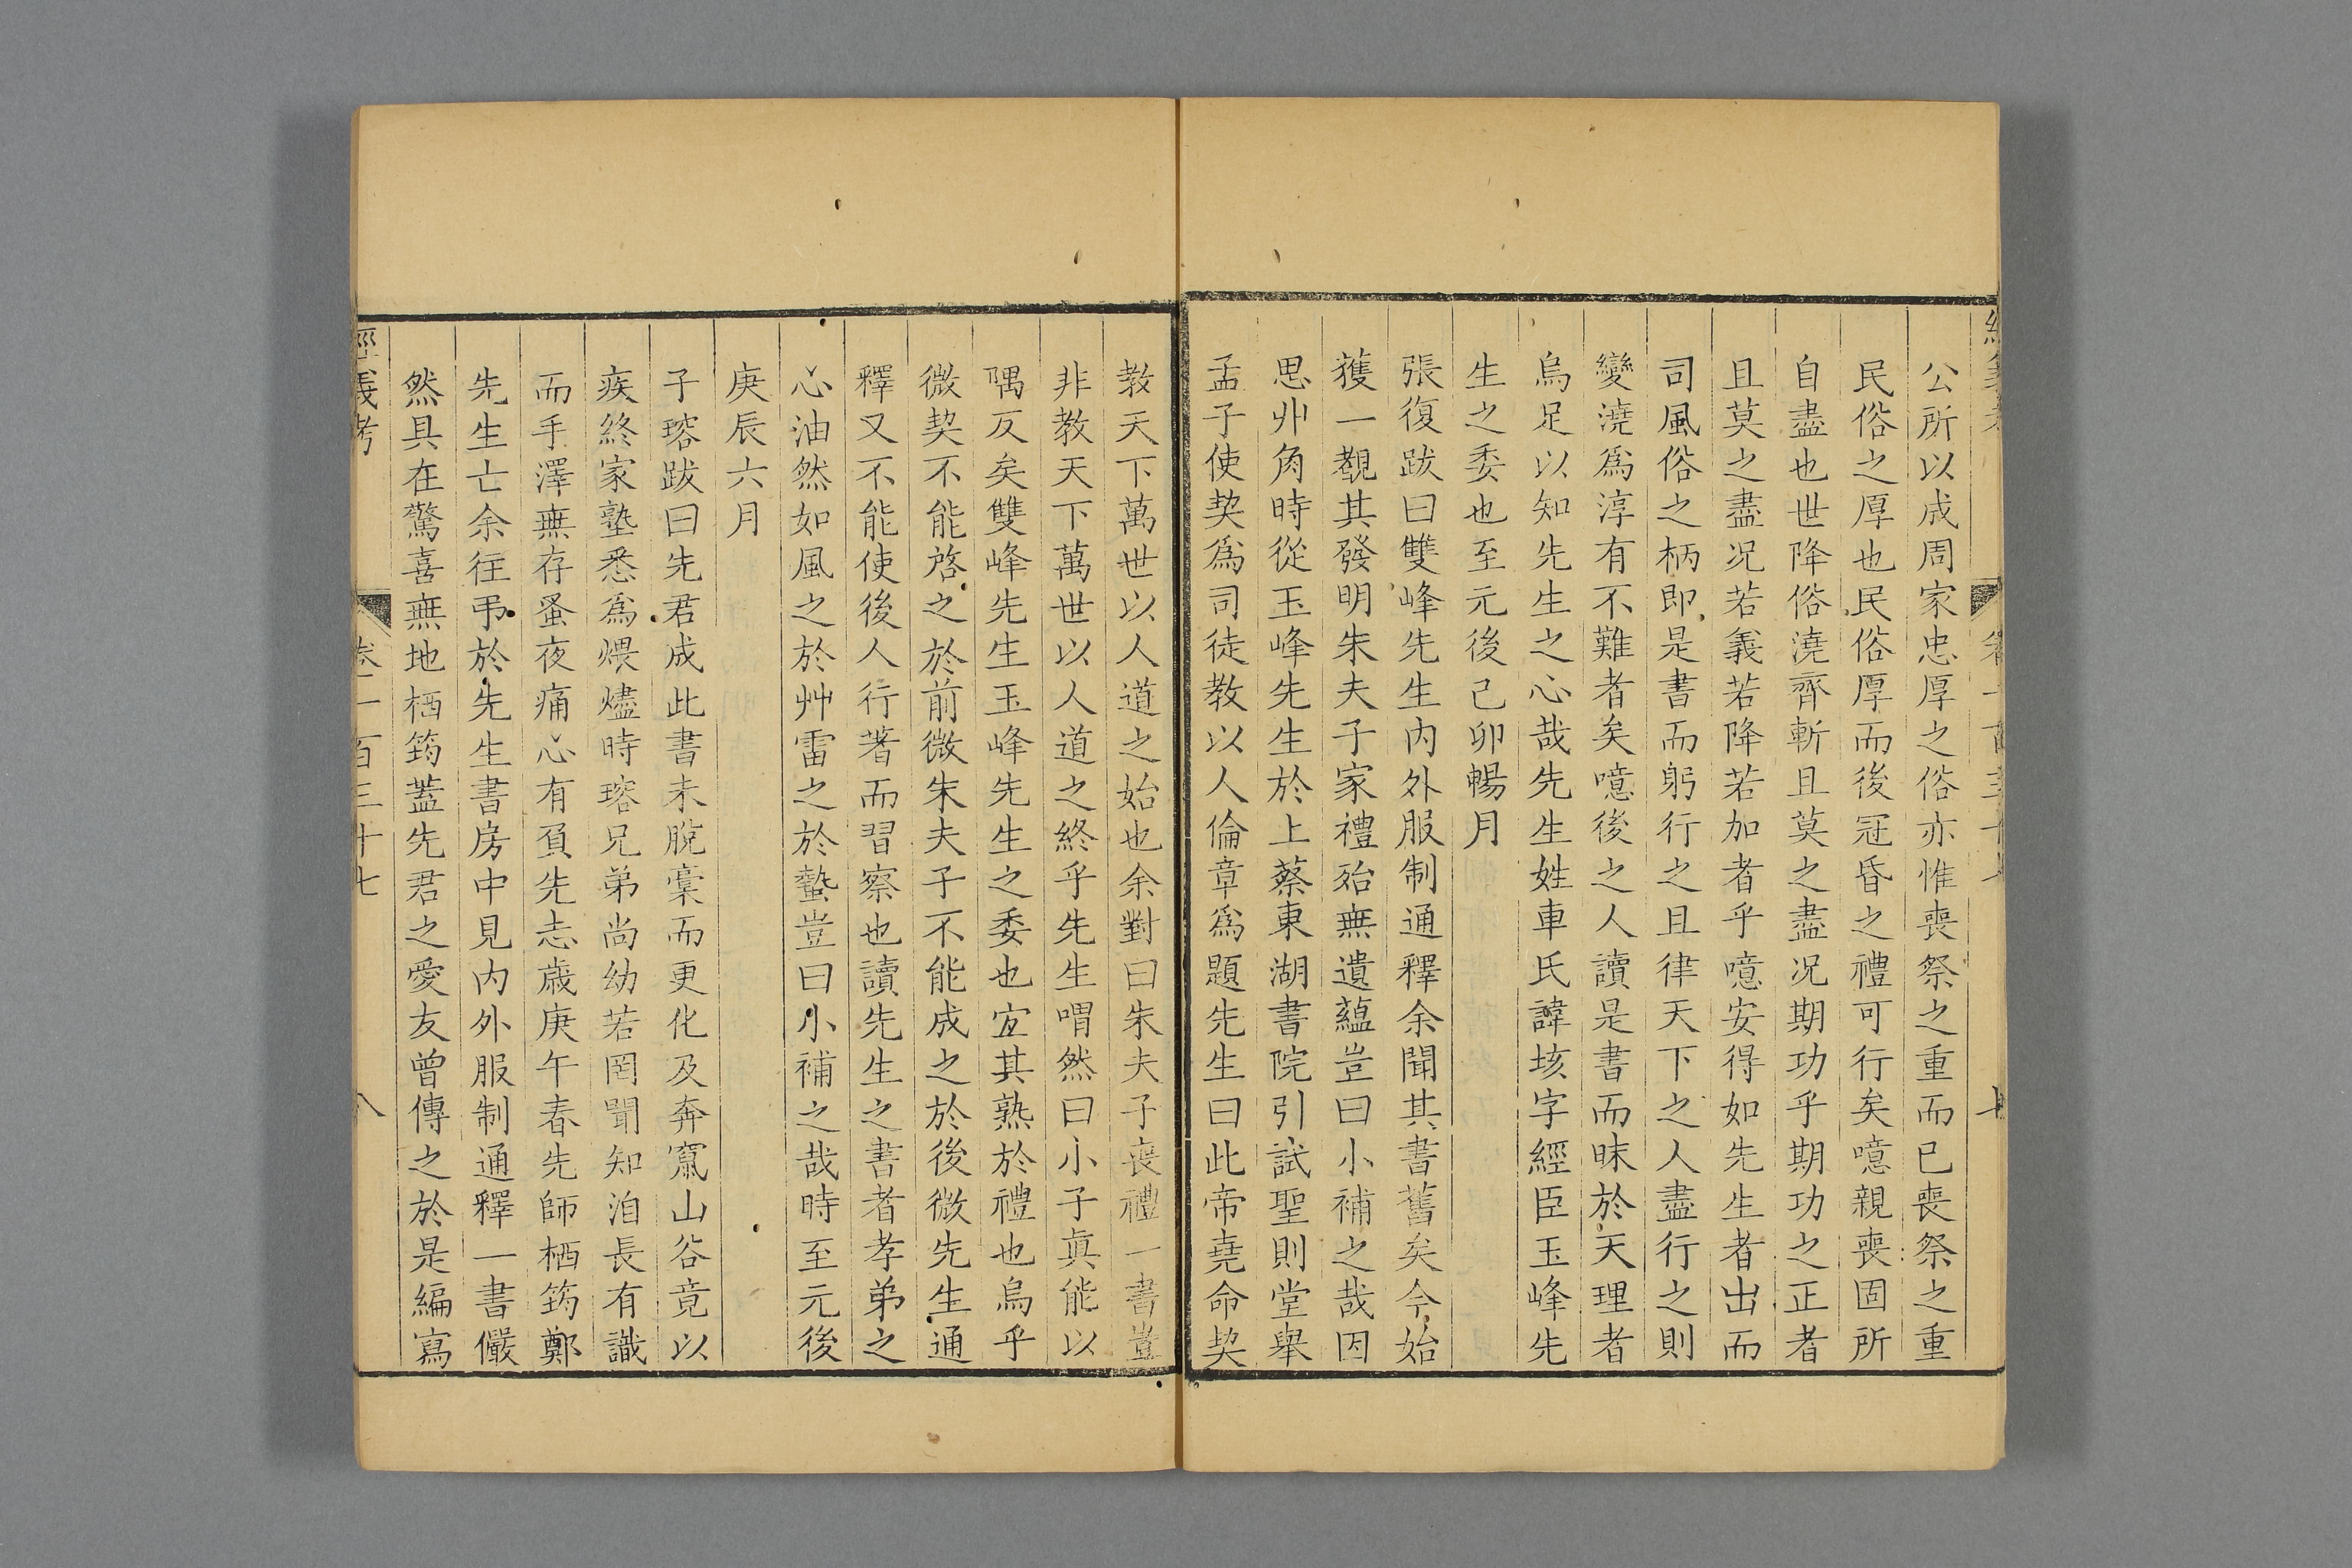 公所以成周家忠厚之俗亦惟喪祭之重而已喪祭之重
民俗之厚也民俗厚而後冠昏之禮可行矣噫親喪固所
自盡也世降俗澆齊斬且莫之盡况期功乎期功之正者
且莫之盡况若義若降若加者乎噫安得如先生者出而
司風俗之柄即是書而躬行之且律天下之人盡行之則
變澆爲淳有不難者矣噫後之人讀是書而昧於天理者
烏足以知先生之心哉先生姓車氏諱垓字經臣玉峰先
生之委也至元後己卯暢月
張復跋曰雙峰先生内外服制通釋余聞其書舊矣今始
獲一覩其發明朱夫子家禮殆無遺蘊豈曰小補之哉因
思丱角時從玉峰先生於上蔡東湖書院引試聖則堂舉
孟子使契爲司徒教以人倫章爲題先生曰此帝堯命契
教天下萬世以人道之始也余對曰朱夫子喪禮一書豈
非教天下萬世以人道之終乎先生喟然曰小子真能以
隅反矣雙峰先生玉峰先生之委也宜其熟於禮也烏乎
微契不能啓之於前微朱夫子不能成之於後微先生通
釋又不能使後人行著而習察也讀先生之書者孝弟之
心油然如風之於艸雷之於蟄豈曰小補之哉時至元後
庚辰六月
子瑢跋曰先君成此書未脫稾而更化及奔竄山谷竟以
疾終家塾悉爲煨燼時瑢兄弟尚幼若罔聞知洎長有識
而手澤無存蚤夜痛心有負先志歲庚午春先師栖筠鄭
先生亡余往弔於先生書房中見内外服制通釋一書儼
然具在驚喜無地栖筠蓋先君之愛友曾傳之於是編寫
經義考
卷一百三十七
八